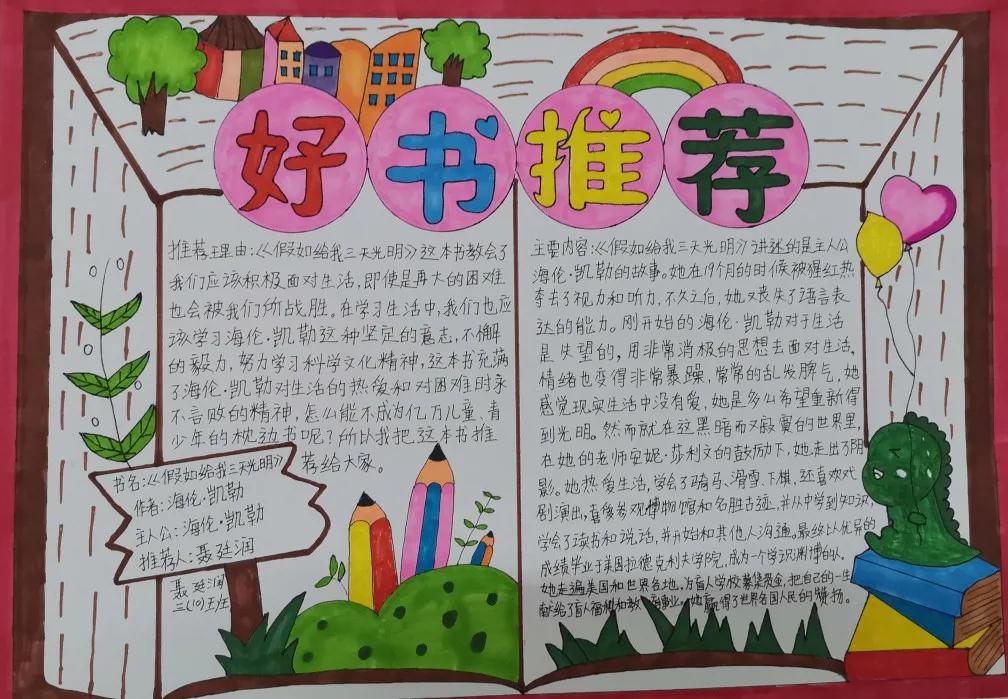 好书推荐
推荐理由:《假如给我三天光明》这本书教会了
我们应该积极面对生活,即使是再大的困难
也会被我们所战胜。在学习生活中,我们也应
该学习海伦·凯勒这种坚定的意志,不懈
的毅力,努力学习科学文化精神,这本书充满
了海伦·凯勒对生活的热爱和对困难时永
不言败的精神,怎么能不成为亿万儿童、青
少年的枕边书呢?所以我把这本书推
荐给大家。
书名:《假如给我三天光明》
作者:海伦·凯勒
主人公:海伦·凯勒
推荐人:聂廷润
聂廷润
三(10)王庄
主要内容:《假如给我三天光明》讲述的是主人公
海伦·凯勒的故事。她在19个月的时候被猩红热
夺去了视力和听力,不久之后,她又丧失了语言表
达的能力。刚开始的海伦·凯勒对于生活
是失望的,用非常消极的思想去面对生活,
情绪也变得非常暴躁,常常的乱发脾气。她
感觉现实生活中没有爱,她是多么希望重新得
到光明。然而就在这黑暗而又寂寞的世界里,
在她的老师安妮·莎利文的鼓励下,她走出了阴
影。她热爱生活,学会了骑马、滑雪、下棋,还喜欢戏
剧演出,喜爱参观博物馆和名胜古迹,并从中学到知识,
学会了读书和说话,并开始和其他人沟通。最终以优异的
成绩毕业于美国拉德克利夫学院,成为一个学识渊博的人。
她走遍美国和世界各地,为盲人学校募集资金,把自己的一生
献给了盲人福利和教育事业。她赢得了世界各国人民的赞扬。